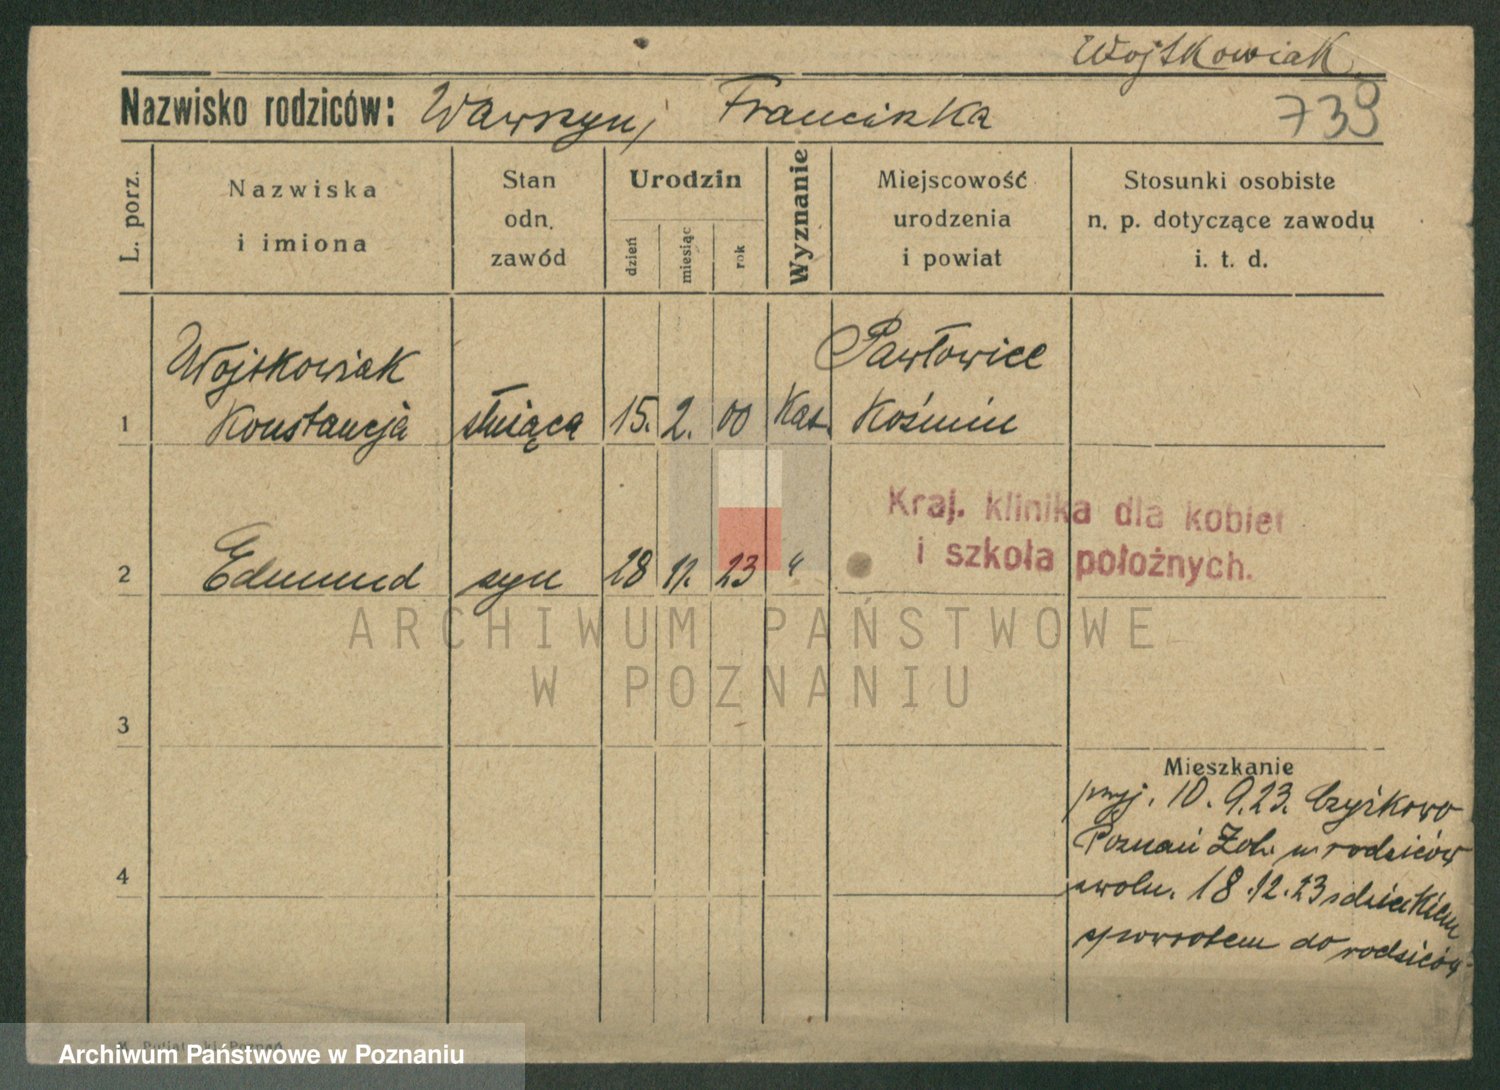 Wojtkowiak
Nazwisko rodziców: Wawrzyn, Franciszka
739
L. porz.
Nazwiska
i imiona
Stan
odn.
zawód
Urodzin
dzień
miesiąc
rok
Wyznanie
Miejscowość
urodzenia
i powiat
Stosunki osobiste
n. p. dotyczące zawodu
i. t. d.
Wojtkowiak Pawłowice
1 Konstancja służąca 15. 2. 00 Kat. Koźmin
Kraj. klinika dla kobiet
i szkoła położnych.
2 Edmund syn 28 11. 23 "
ARCHIWUM PAŃSTWOWE
W POZNANIU
3
Mieszkanie
przyj. 10. 9.23.
Poznań rodziców
4
zwoln. 18.12.23 z dzieckiem
spowrotem do rodziców
Archiwum Państwowe w Poznaniu